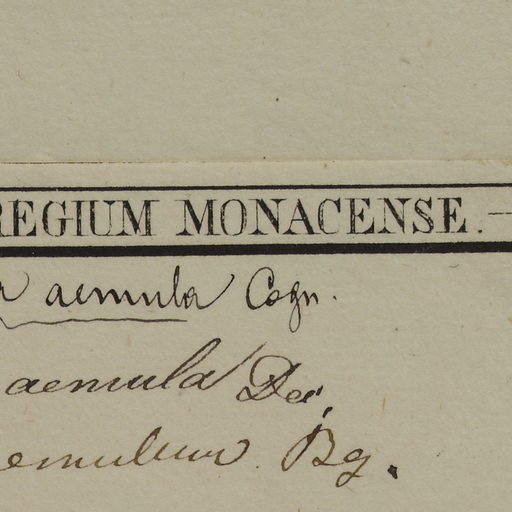 REGIUM MONACENSE.—
aemula Cogn.
aemula
emulum Bg.